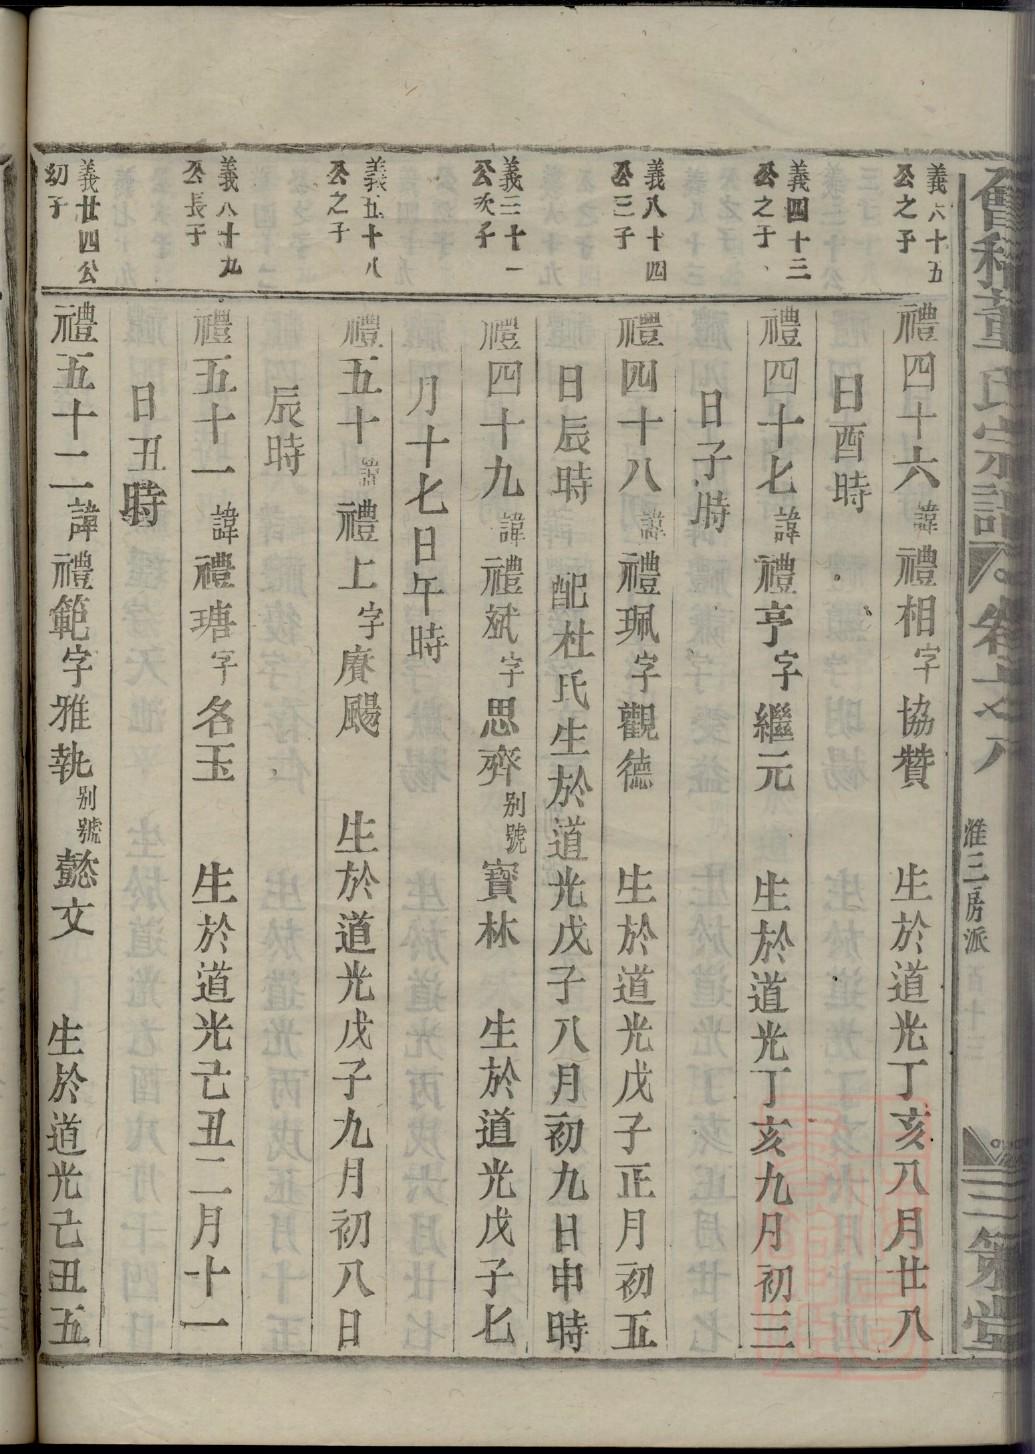 會稽董氏宗譜 卷之八
雅三房派
三策堂
義六十五
公之子
禮四十六諱禮相字協贊 生於道光丁亥八月廿八
日酉時
義四十三
公之子
禮四十七諱禮亨字繼元 生於道光丁亥九月初三
日子時
義八十四
公三子
禮四十八諱禮珮字觀德 生於道光戊子正月初五
日辰時 配杜氏生於道光戊子八月初九日申時
義三十一
公次子
禮四十九諱禮斌字思齊别號寶林 生於道光戊子七
月十七日午時
義五十八
公之子
禮五十諱禮上字賡颺 生於道光戊子九月初八日
辰時
義八十九
公長子
禮五十一諱禮瑭字名玉 生於道光己丑二月十一
日丑時
義廿四公
幼子
禮五十二諱禮範字雅執别號懿文 生於道光己丑五